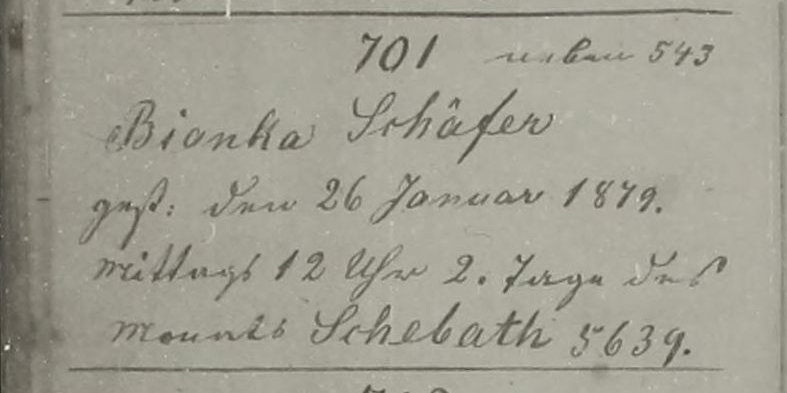 701 neben 543
Bianka Schäfer
gest: den 26 Januar 1879.
Mittags 12 Uhr 2. Tage des
Monats Schebath 5639.